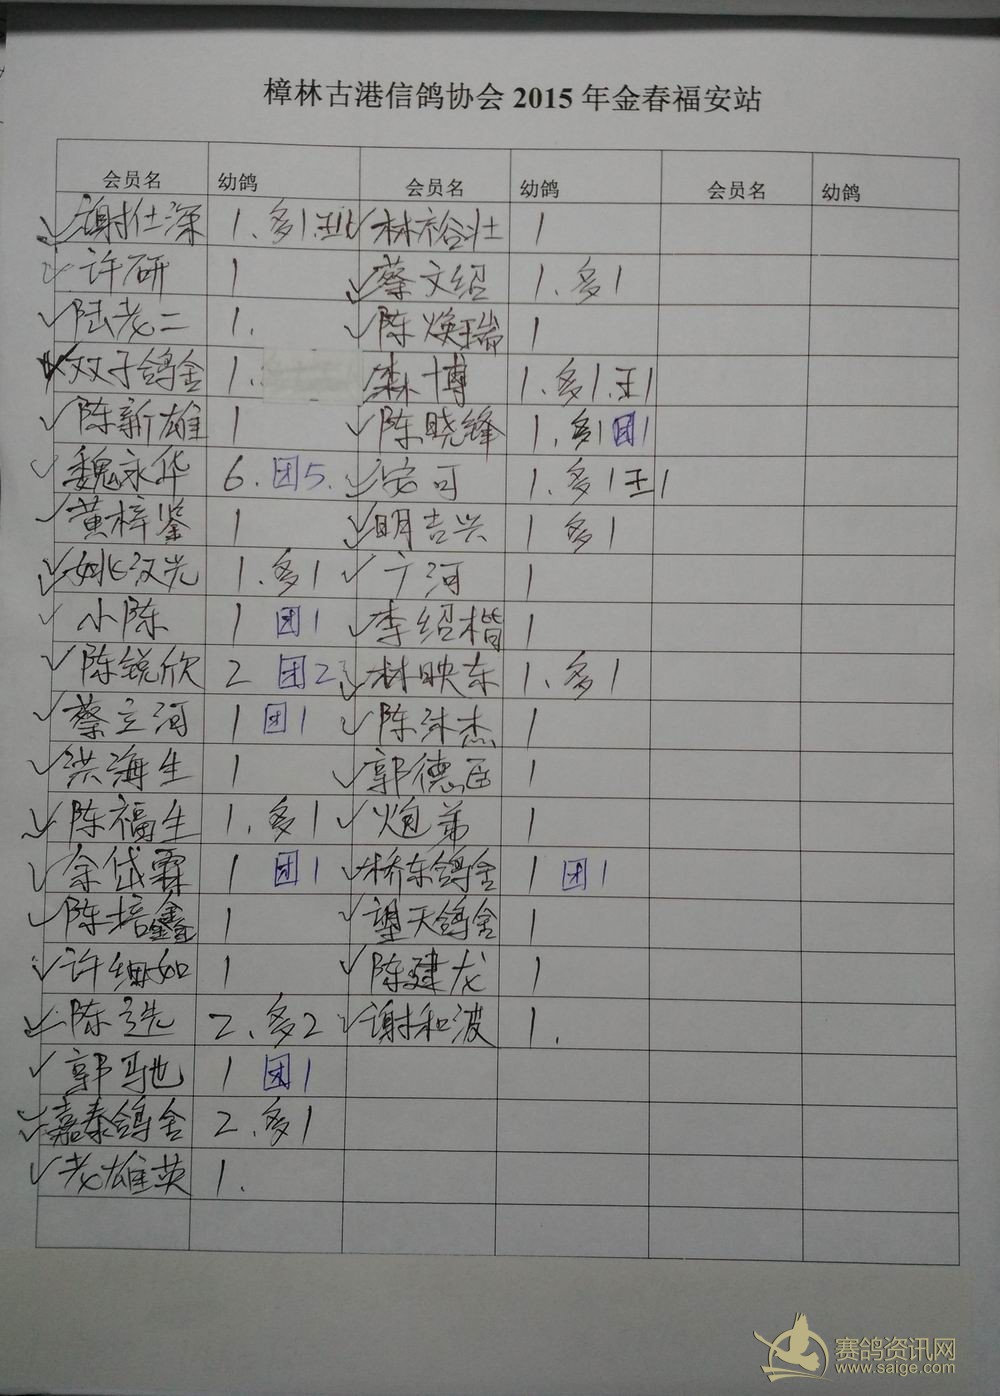 樟林古港信鸽协会2015年金春福安站
会员名 幼鸽 会员名 幼鸽 会员名 幼鸽
谢仕深 1.多1.王1 林裕壮 1
许研 1 蔡文绍 1.多1
陆老二 1. 陈焕瑞 1
双子鸽舍 1. 森博 1.多1.王1
陈新雄 1 陈晓锋 1.多1团1
魏永华 6.团5. 安可 1.多1王1
黄梓鉴 1 明吉兴 1多1
姚汉光 1.多1 广河 1
小陈 1团1 李绍楷 1
陈锐欣 2团2 林映东 1.多1
蔡立河 1团1 陈沐杰 1
洪海生 1 郭德 1
陈福生 1.多1 炮弟 1
余岱霖 1团1 桥东鸽舍 1团1
陈培鑫 1 望天鸽舍 1
许细如 1 陈建龙 1
陈选 2.多2 谢和波 1.
郭驰 1团1
嘉泰鸽舍 2.多1
老雄英 1.
赛鸽资讯网
www.saige.com